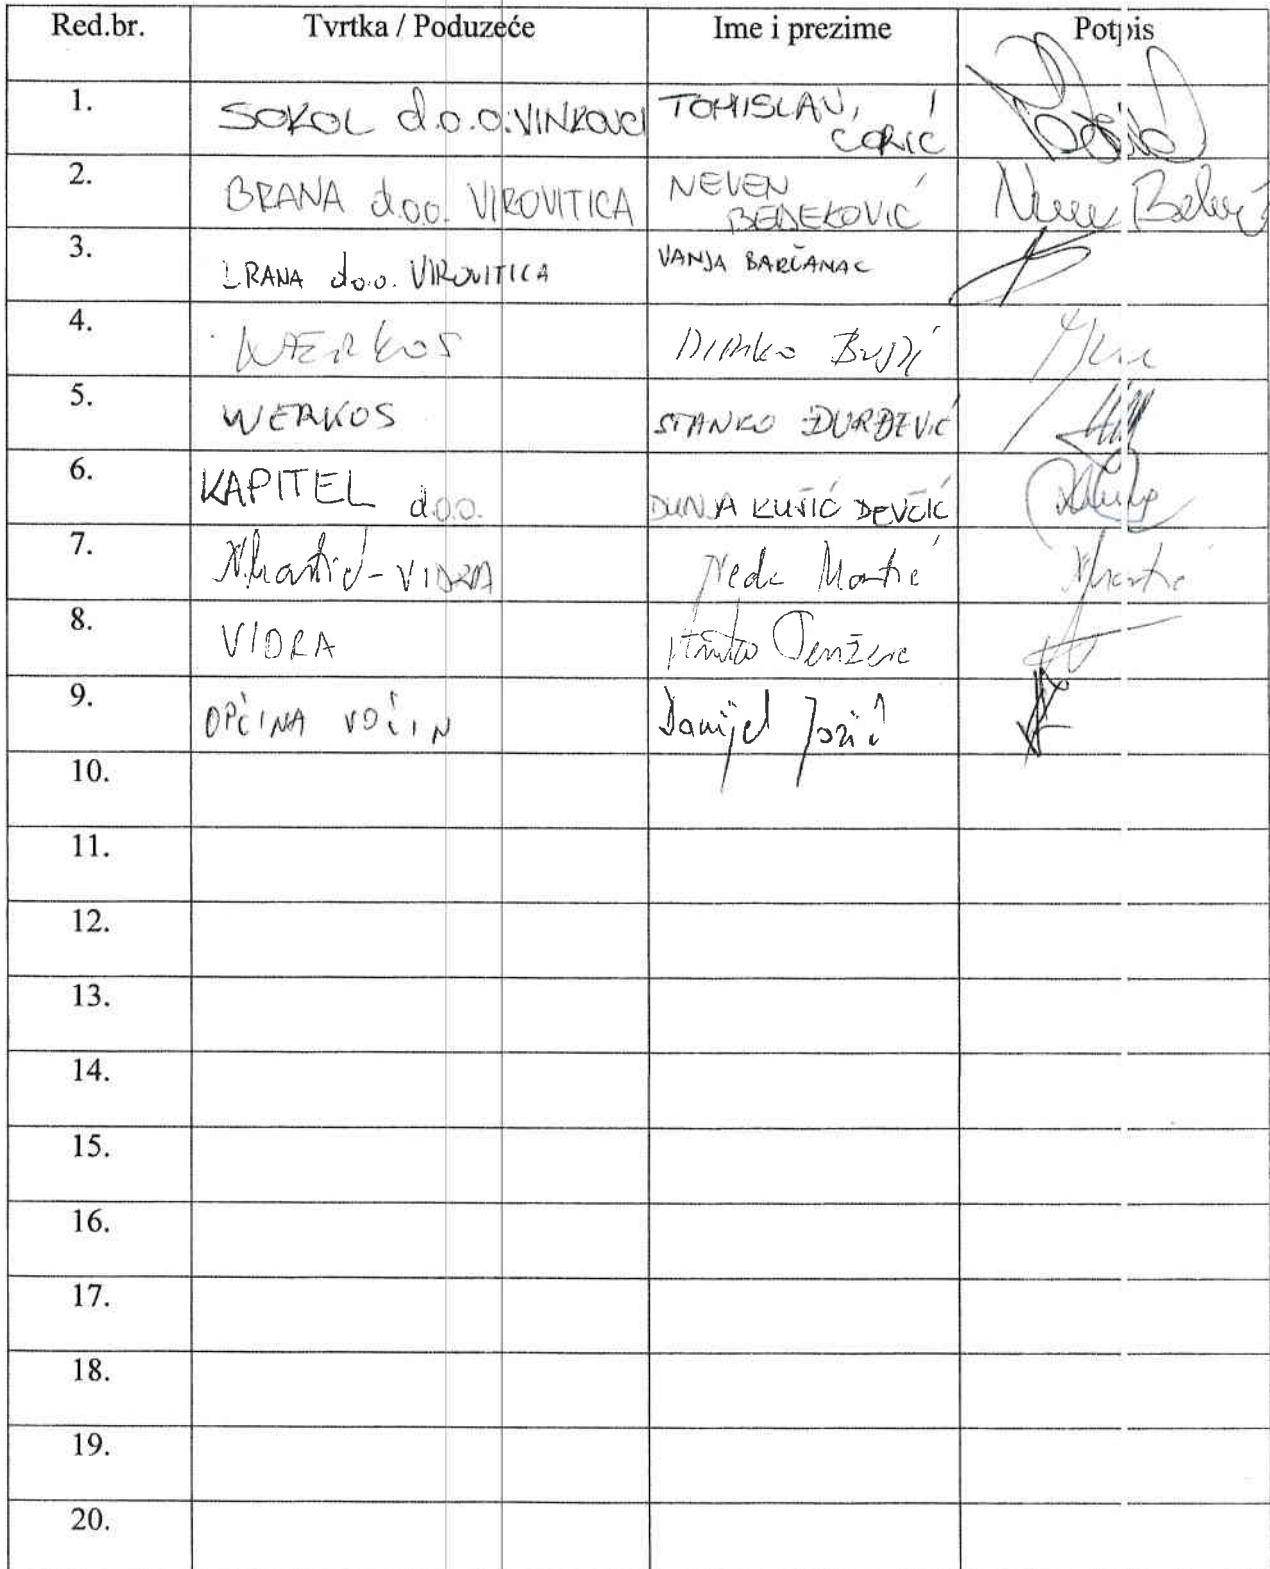 Red.br. Tvrtka / Poduzeće Ime i prezime Potpis
1. SOKOL d.o.o. VINKOVCI TOMISLAV, ĆORIĆ
2. BRANA d.o.o. VIROVITICA NEVEN BEDEKOVIĆ
3. BRANA d.o.o. VIROVITICA VANJA BARČANAC
4. WERKOS
5. WERKOS STANKO ĐURĐEVIĆ
6. KAPITEL d.o.o. DUNJA KUŠIĆ DEVČIĆ
7. VIDRA Martić
8. VIDRA
9. OPĆINA VOĆIN Danijel Jozić
10.
11.
12.
13.
14.
15.
16.
17.
18.
19.
20.